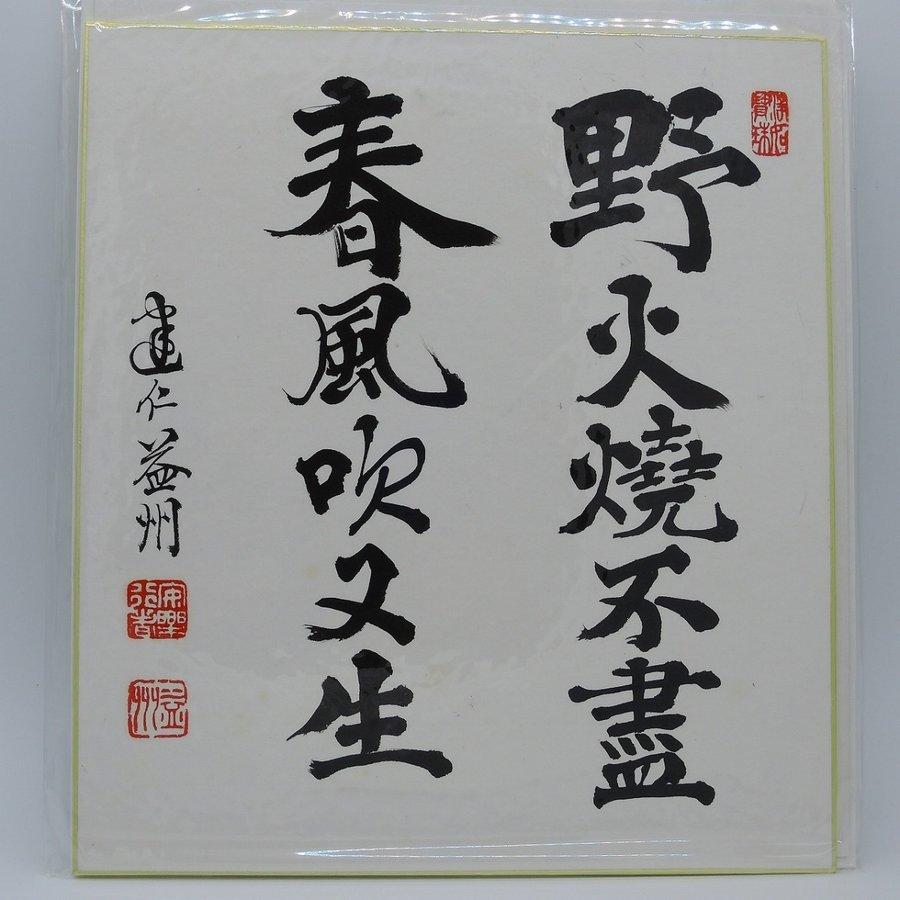 野火燒不盡
春風吹又生
建仁益州
益州